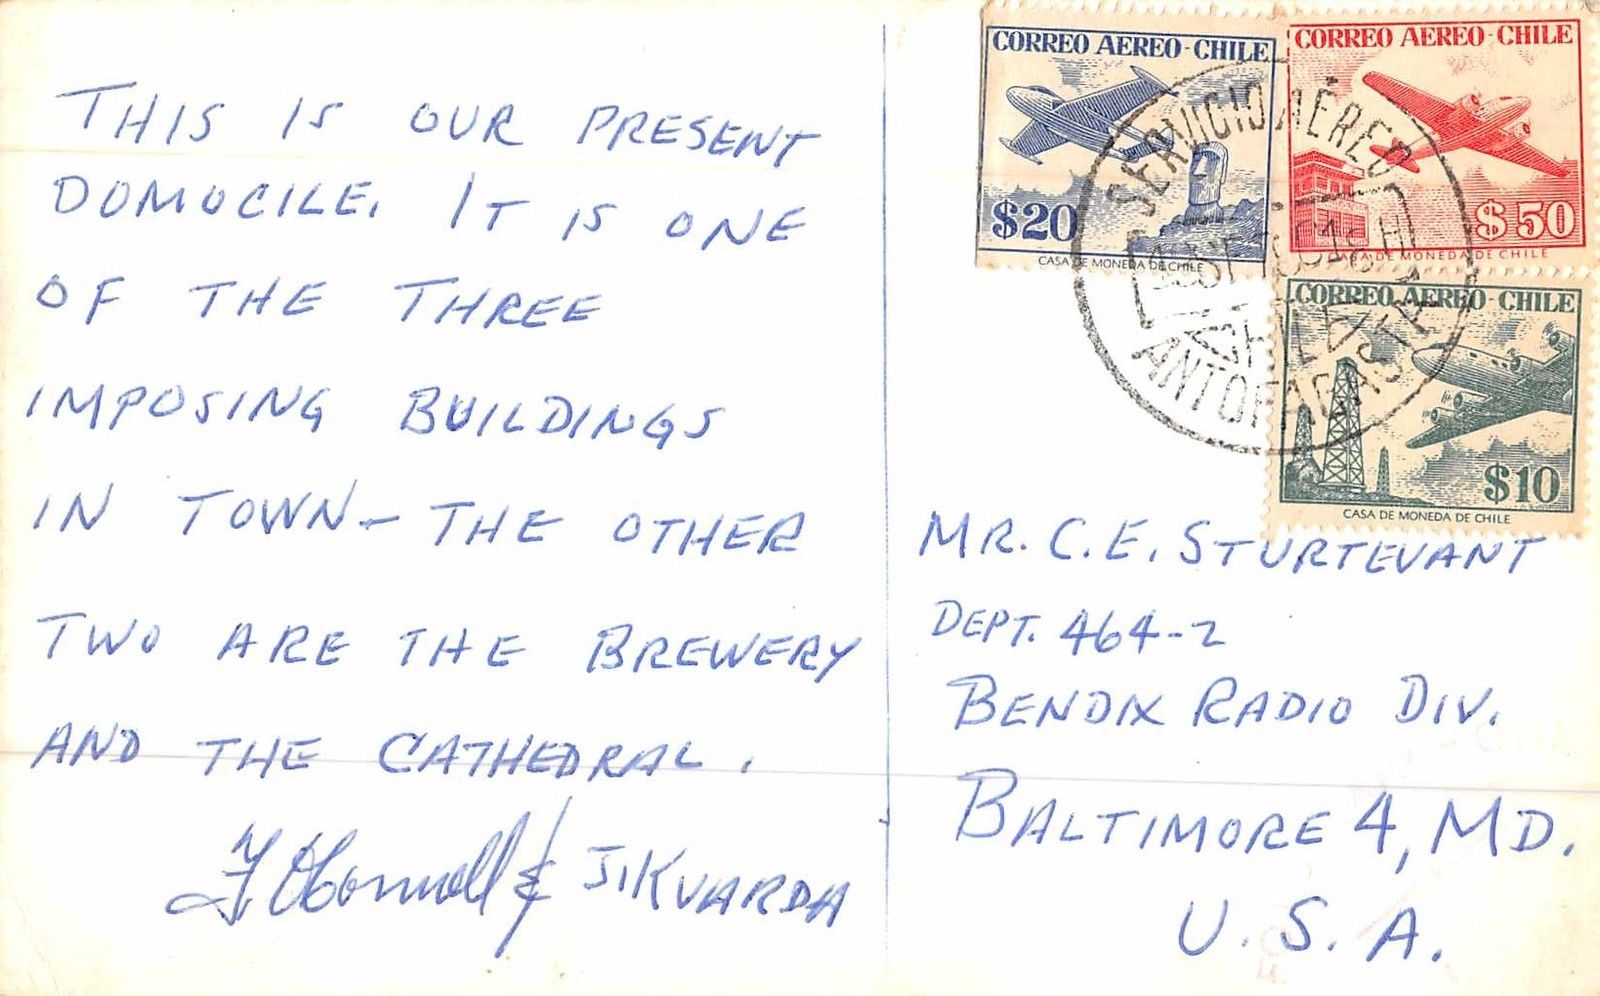 THIS IS OUR PRESENT
DOMOCILE. IT IS ONE
OF THE THREE
IMPOSING BUILDINGS
IN TOWN - THE OTHER
TWO ARE THE BREWERY
AND THE CATHEDRAL.
F O'Connell & J. KVARDA
CORREO AEREO - CHILE
$20
CASA DE MONEDA DE CHILE
CORREO AEREO - CHILE
$50
CASA DE MONEDA DE CHILE
CORREO AEREO - CHILE
$10
CASA DE MONEDA DE CHILE
SERVICIO AEREO
CHILE
ANTOFAGASTA
MR. C. E. STURTEVANT
DEPT. 464-2
BENDIX RADIO DIV.
BALTIMORE 4, MD.
U. S. A.